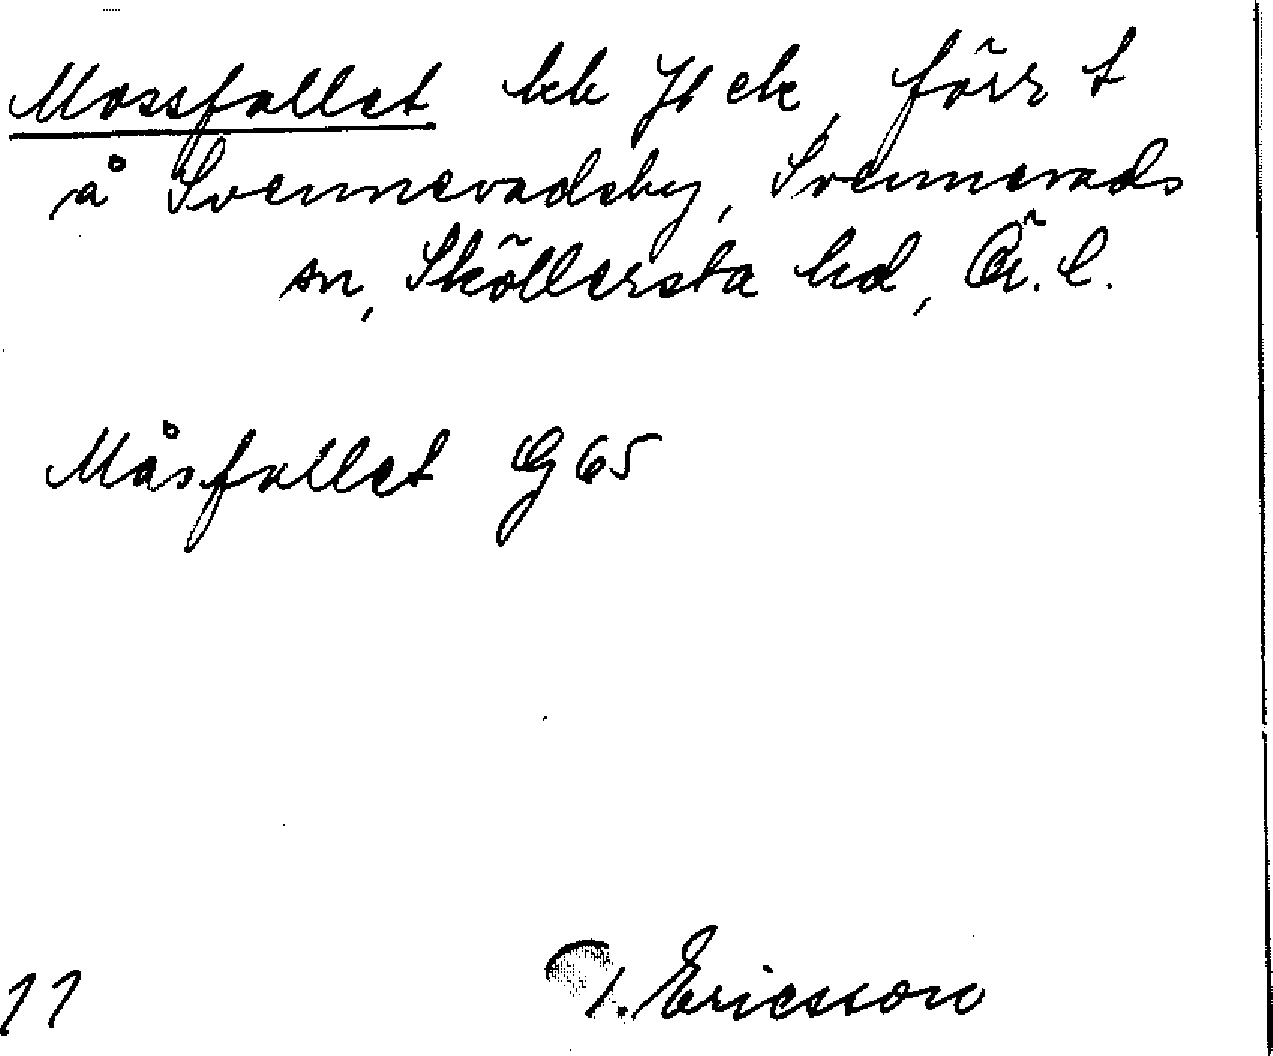 Mossfallet bb Jb ek, förr t
å Svennevadsby, Svennevads
sn, Sköllersta hd, Ör. l.
Måsfallet G 65
T. Ericsson